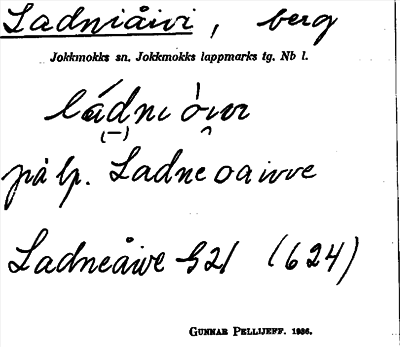 Ladniåivi, berg
Jokkmokks sn. Jokkmokks lappmarks tg. Nb l.
ládni òivi
(–)
på lp. Ladne oaivve
Ladneåive 521 (624)
GUNNAR PELLIJEFF. 1936.